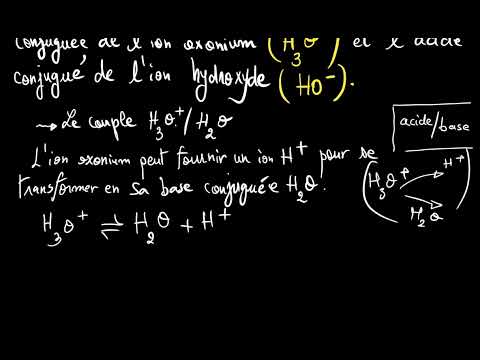 conjuguée de l'ion oxonium (H₃O⁺) et l'acide
conjugué de l'ion hydroxyde (HO⁻).
→ Le couple H₃O⁺/H₂O
acide/base
L'ion oxonium peut fournir un ion H⁺ pour se
transformer en sa base conjuguée H₂O.
H₃O⁺ H⁺
H₂O
H₃O⁺ ⇌ H₂O + H⁺